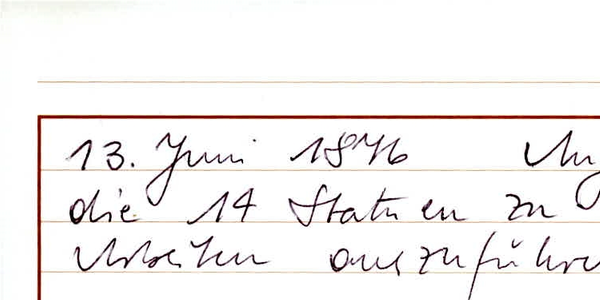 13. Juni 1876
die 14 Statuen zu
Arbeiten auszuführe